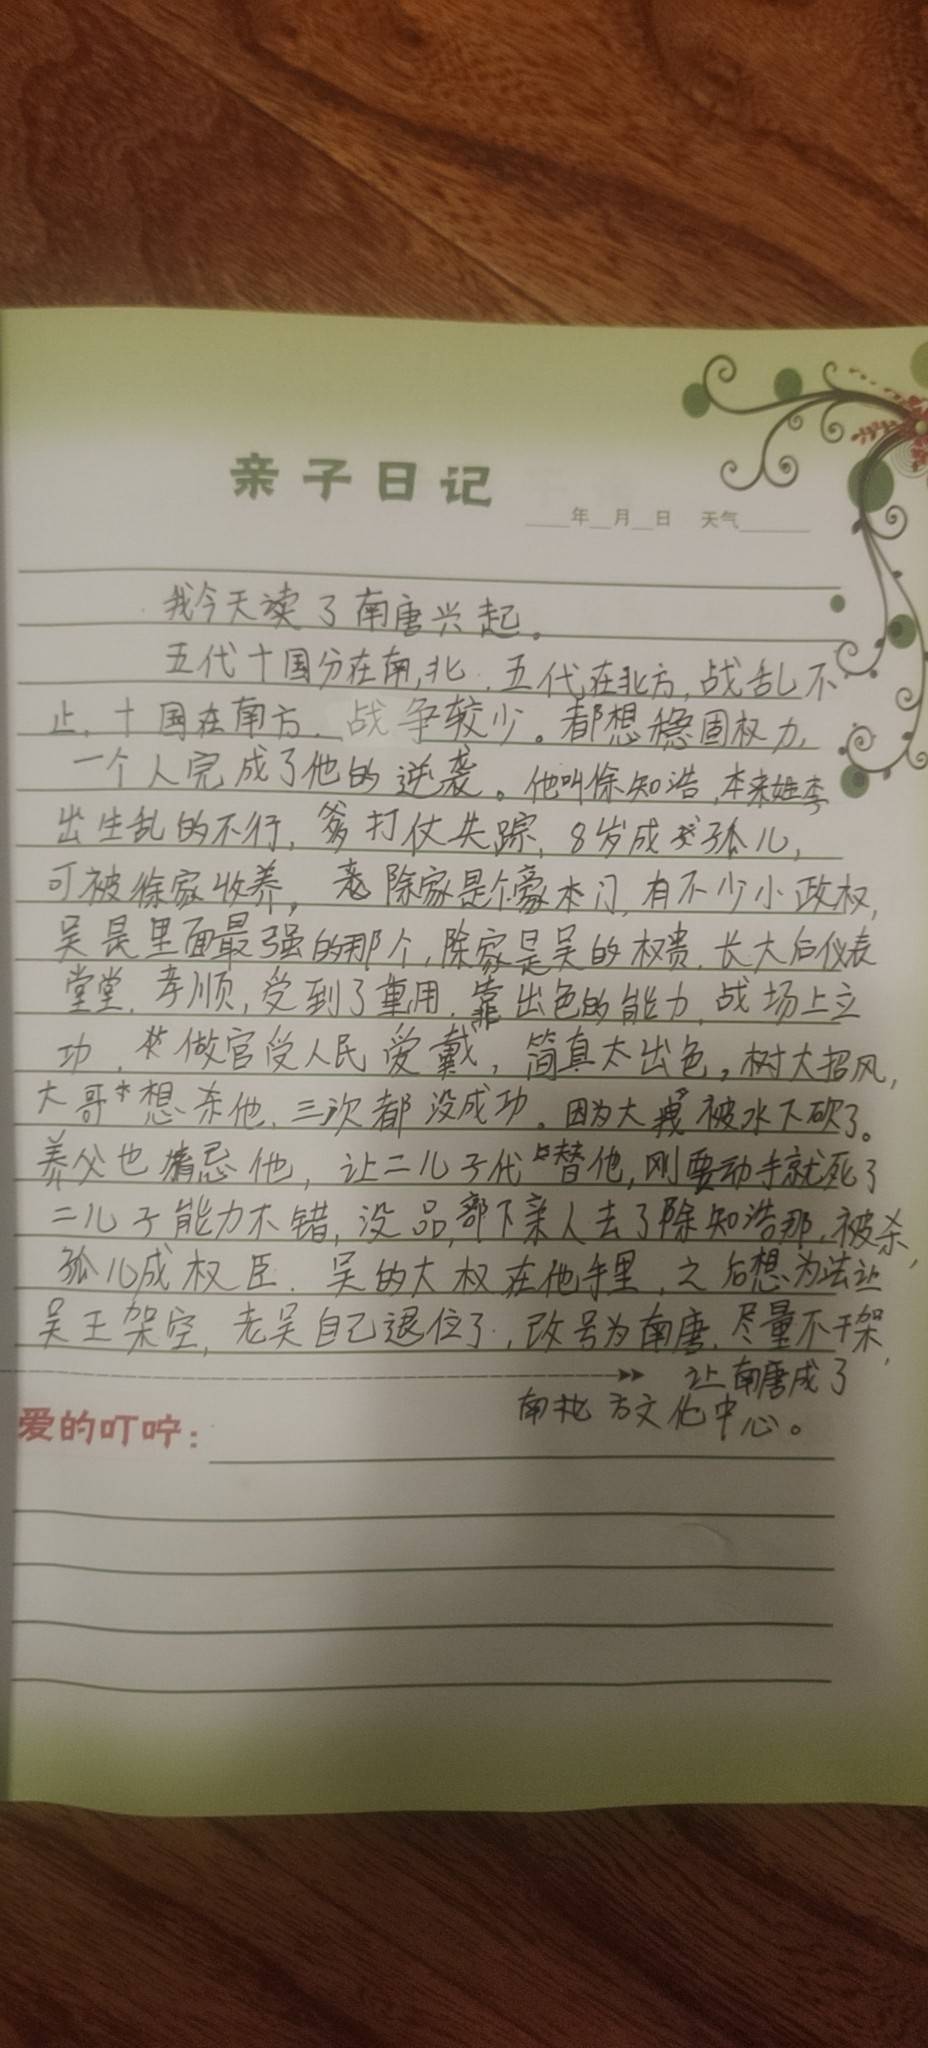 亲子日记
____年__月__日 天气______
我今天读了南唐兴起。
五代十国分在南,北. 五代在北方,战乱不
止,十国在南方,战争较少。都想稳固权力,
一个人完成了他的逆袭。他叫徐知浩,本来姓李
出生乱的不行,爹打仗失踪,8岁成孤儿,
可被徐家收养。 除家是个豪本门,有不少小政权,
吴是里面最强的那个,除家是吴的权贵.长大后仪表
堂堂.孝顺,受到了重用.靠出色的能力,战场上立
功. 做官受人民爱戴,简真太出色。树大招风,
大哥想杀他.三次都没成功。因为大哥被水下砍了。
养父也猜忌他,让二儿子代替他,刚要动手就死了
二儿子能力不错,没品,部下亲人去了除知浩那,被杀,
孤儿成权臣.吴的大权在他手里,之后想办法让
吴王架空,老吴自己退位了,改号为南唐.尽量不干架,
让南唐成了
南北方文化中心。
爱的叮咛: